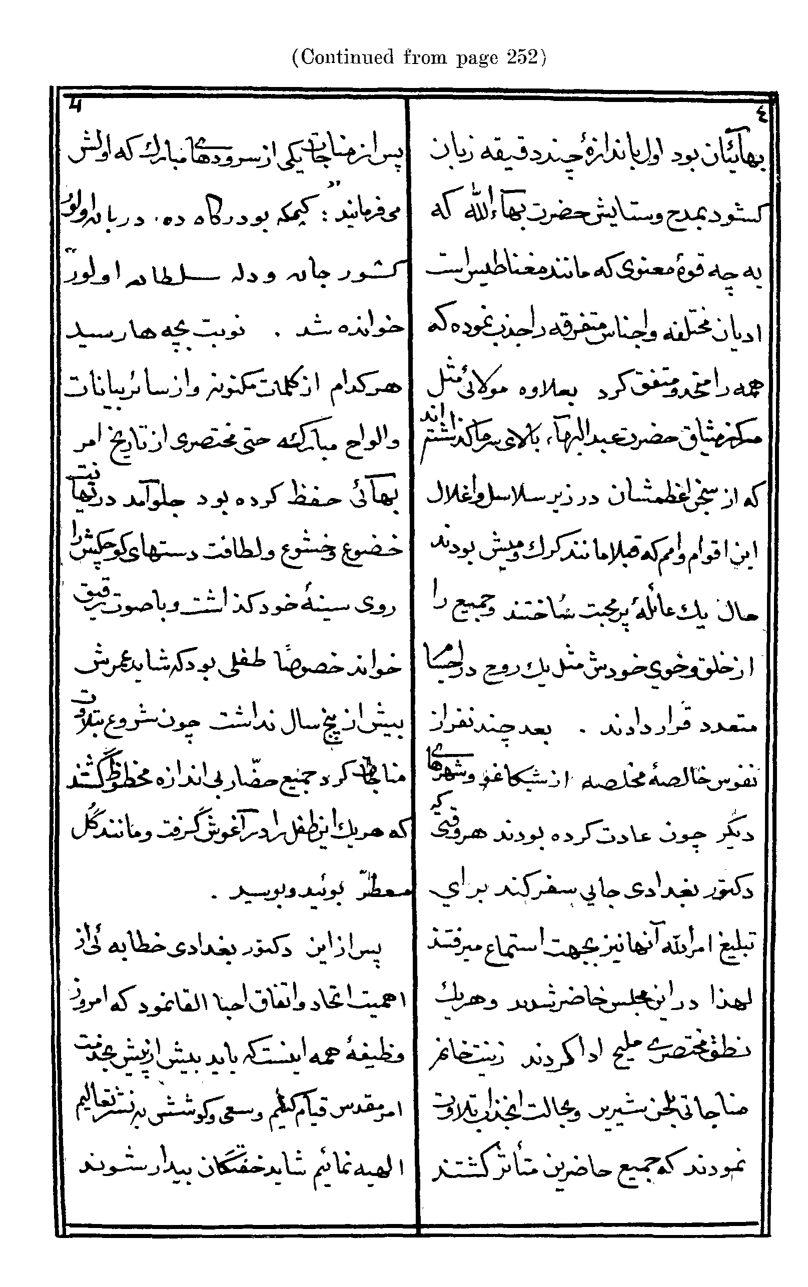 (Continued from page 252)
٤
بهائیان بود اول باندازهٔ چند دقیقه زبان
کشود بمدح وستایش حضرت بهاءالله که
به چه قوهٔ معنوی که مانند مغناطیس است
ادیان مختلفه واجناس متفرقه را جذب نموده که
همه را متحد و متفق کرد بعلاوه مولائی مثل
مرکز میثاق حضرت عبدالبهآء بالای سر ما گذاشته اند
که از سجن اعظمشان در زیر سلاسل و اغلال
این اقوام وامم که قبلا مانند کرک ومیش بودند
حال یك عائلهٔ پر محبت ساختند و جمیع را
از خلق و خوی خودش مثل یك روح در اجسام
متعدد قرار دادند . بعد چند نفر از
نفوس خالصهٔ مخلصه از شیکاغو و شهرهای
دیگر چون عادت کرده بودند هر وقتی که
دکتور بغدادی جایی سفر کند برای
تبلیغ امرالله آنها نیز بجهت استماع میرفتند
لهذا در این مجلس حاضر شدند وهریك
نطق مختصرے ملیح ادا کردند زینت خانم
مناجاتی بلحن شیرین وبحالت انجذاب تلاوت
نمودند که جمیع حاضرین متأثر کشتند
پس از مناجات یکی از سرودهاے مبارك که اولش
می‌فرمایند : "کیمکه بو درگاه ده، دربان اولور
کشور جان و دله سلطان اولور"
خوانده شد . نوبت بچه ها رسید
هرکدام از کلمات مکنونه و از سائر بیانات
والواح مبارکه حتی مختصری از تاریخ امر
بهائی حفظ کرده بود جلو آمد در نهایت
خضوع و خشوع ولطافت دستهای کوچکش را
روی سینهٔ خود کذاشت و با صوت رقیق
خواند خصوصًا طفلی بود که شاید عمرش
بیش از پنج سال نداشت چون شروع بتلاوت
مناجات کرد جمیع حضّار بی اندازه محظوظ گشتند
که هریك این طفل را در آغوش گرفت ومانند گل
معطّر بوئید و بوسید .
پس از این دکتور بغدادی خطابه ئی از
اهمیت اتحاد و اتفاق احبا القا نمود که امروز
وظیفهٔ همه اینست که باید بیش از پیش بخدمت
امر مقدس قیام کنیم وسعی وکوشش به نشر تعالیم
الهیه نمائیم شاید خفتگان بیدار شوند